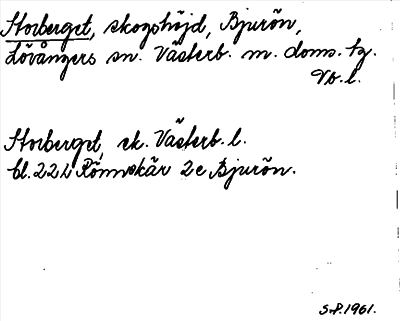 Storberget, skogshöjd, Bjurön,
Lövångers sn. Västerb. m. doms. tg.
Vb. l.
Storberget, ek. Västerb. l.
bl. 22L Rönnskär 2e Bjurön.
S.P. 1961.